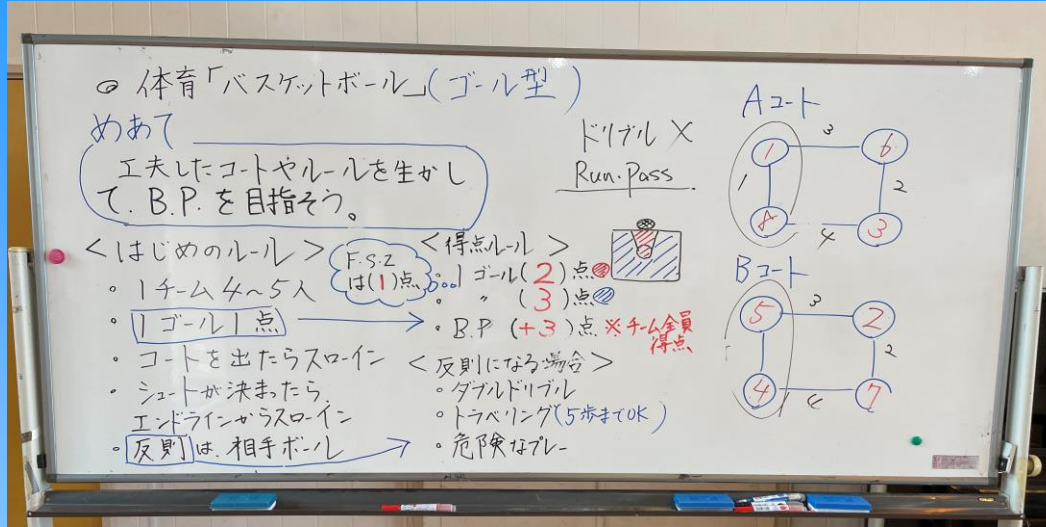 ◎ 体育「バスケットボール」(ゴール型)
めあて
工夫したコートやルールを生かし
て、B.P.を目指そう。
ドリブル ×
Run・Pass
<はじめのルール>
・1チーム4~5人
・1ゴール1点
・コートを出たらスローイン
・シュートが決まったら、
エンドラインからスローイン
・反則は、相手ボール
F.S.Z
は(1)点
<得点ルール>
・1ゴール(2)点
・〃(3)点
・B.P(+3)点 ※チーム全員
得点
<反則になる場合>
・ダブルドリブル
・トラベリング(5歩までOK)
・危険なプレー
Aコート
3
1 6
1 2
8 3
4
Bコート
3
5 2
2
4 7
4